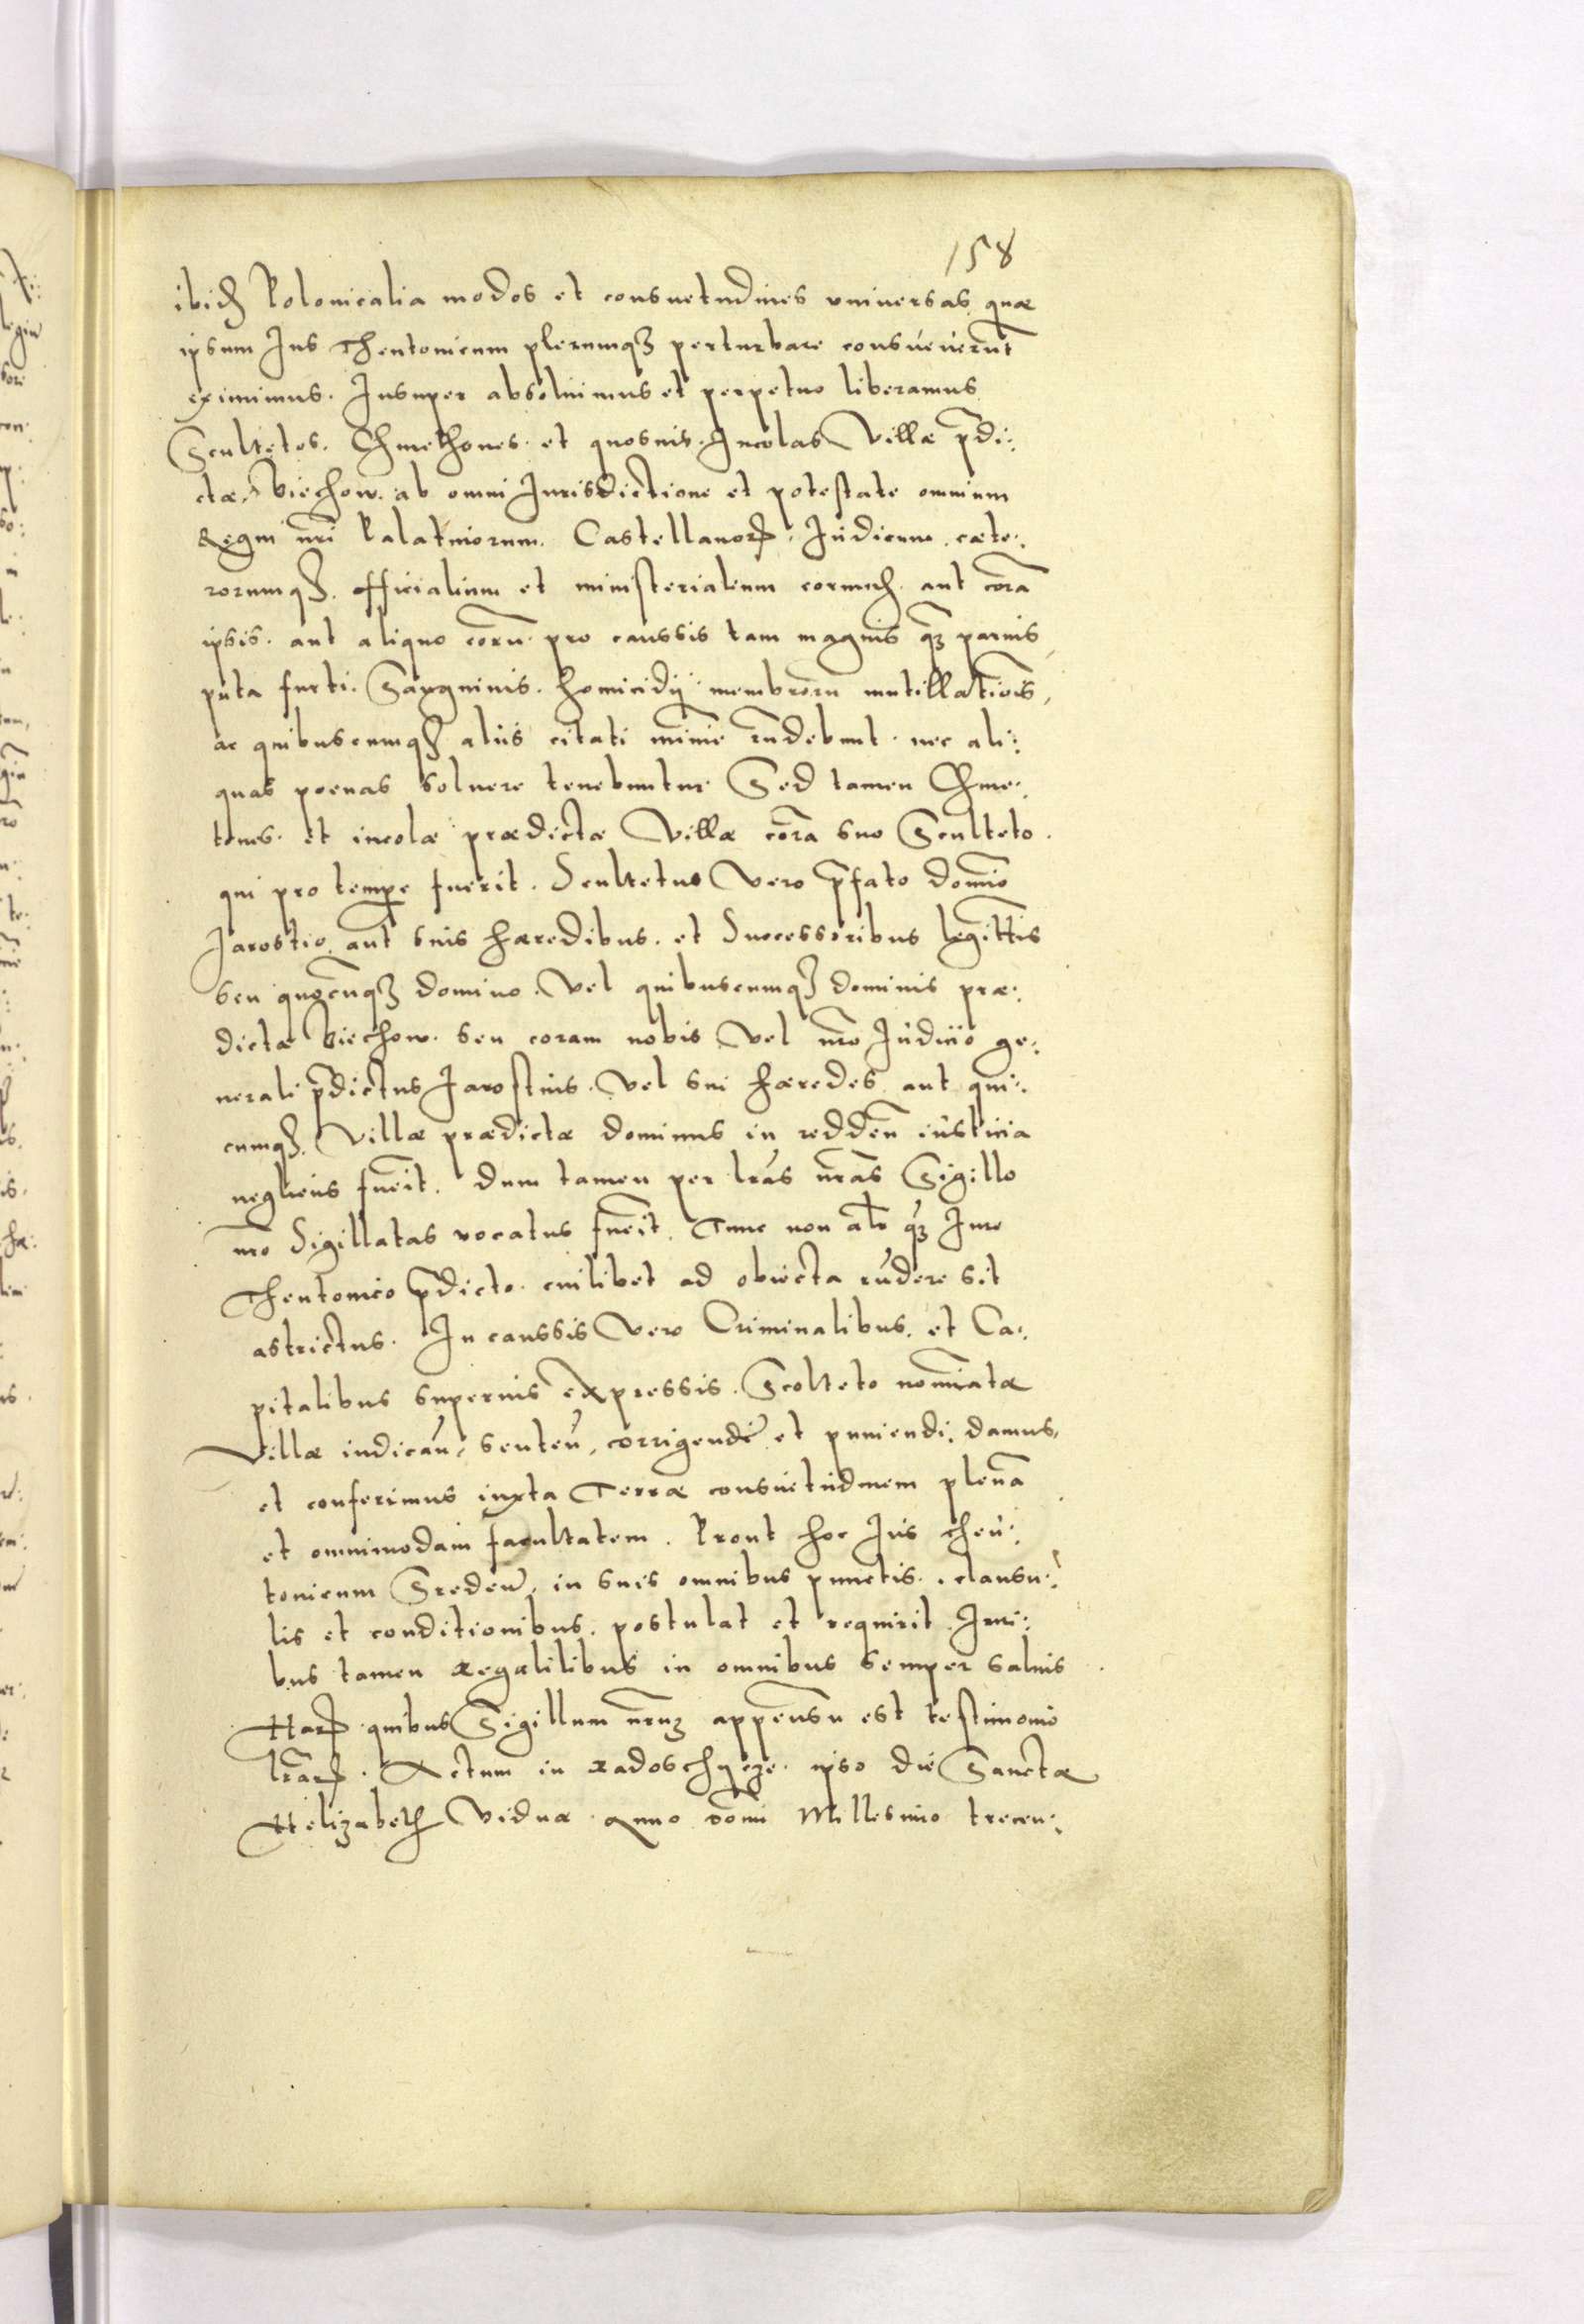 158
ibidē Polonicalia modos et consuetudines vniuersas, quæ
ipsum Ius Theutonicum plerumqʒ perturbare consueuerūt
eximimus. Insuper absoluimus et perpetuo liberamus
Scultetos. Chmethones. et quosuis. Incolas Villæ p̄di:
ctæ, Biechow. ab omni Iurisdictione et potestate omnium
Regni nr̄i Palatinorum. Castellanorꝝ. Iudicum. cæte:
rorumqʒ. officialium et ministerialium eorundē. aut corā
ipsis. aut aliquo eorū. pro caussis tam magnis qʒ paruis,
puta furti. Sangvinis. homicidij membrorū mutillatiōis,
ac quibuscumqʒ aliis citati minīe rn̄debunt. nec ali:
quas poenas soluere tenebuntur Sed tamen Chme:
tones. et incolæ prædictæ Villæ corā suo Sculteto.
qui pro tempe fuerit. Scultetus Vero p̄fato domīo
Iarostio aut suis hæredibus. et Successoribus legittīs
seu quocūqʒ domino. Vel quibuscumqʒ dominis præ:
dictæ Biechow. seu coram nobis Vel nr̄o Iudicio ge:
nerali p̄dictus Iarostius. Vel sui hæredes aut qui:
cumqʒ. Villæ prædictæ dominus in reddēn iusticia
negliens fuerīt. dum tamen per lr̄as nr̄as Sigillo
nr̄o Sigillatas vocatus fuerīt. Tunc non alr̄ qʒ Iure
Theutonico p̄dicto. cuilibet ad obiecta rn̄dere sit
astrictus. In caussis Vero Criminalibus. et Ca:
pitalibus superius expressis. Scolteto nomīatæ
Villæ iudicān, sentēn, corrigendi et puniendi: damus,
et conferimus iuxta Terræ consuetudinem plenā
et omnimodam facultatem. Prout hoc Ius theu:
tonicum Sredeń, in suis omnibus punctis. clausu:
lis et conditionibus. postulat et requirit. Iuri:
bus tamen regalilibus in omnibus semper saluis.
Harꝝ quibus Sigillum nr̄uʒ appensū est testimonio
lr̄arꝝ. Actum in Radoschycze. ipso die Sanctæ
Helizabeth Viduæ anno domī Millesimo trecen: